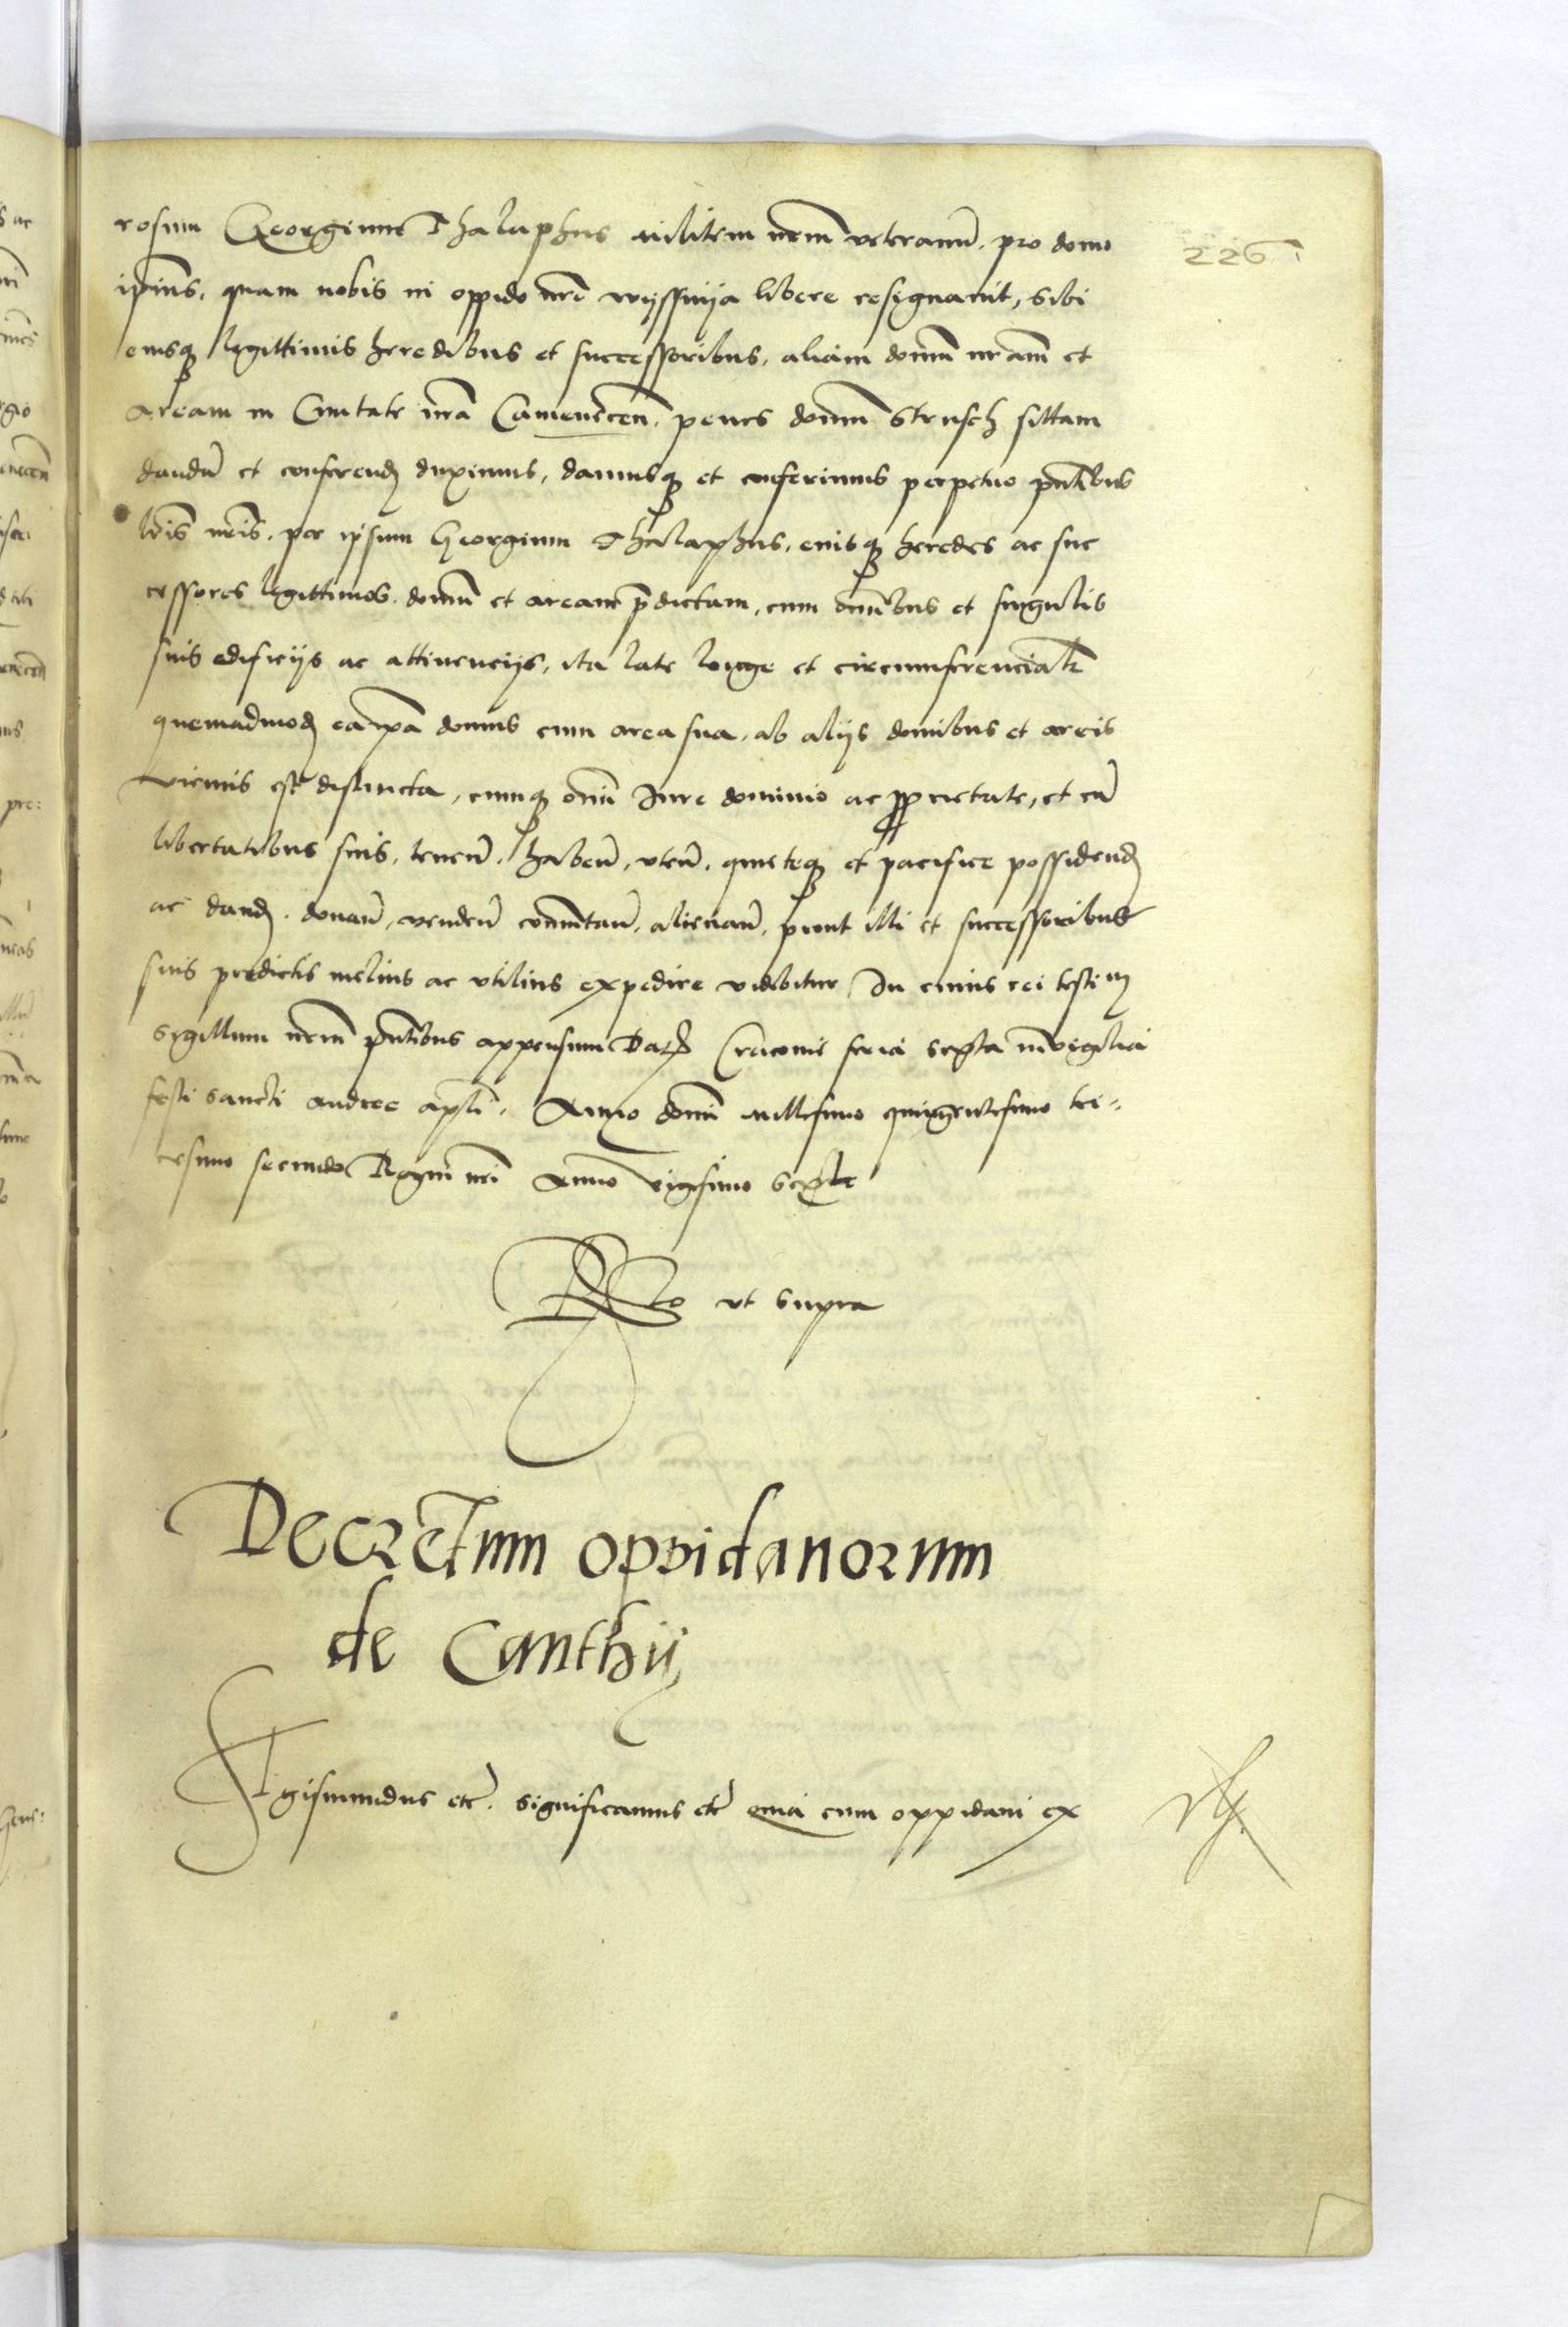 226
rosum Georgium Thalaphus militem nrm veteranū. pro domo
ipius, quam nobis in oppido nrō wyssnija libere resignavit, sibi
eiusq legittimis heredibus et successoribus. aliam domū nram et
aream in Civitate nra Camenecen. penes domū Strusch sittam
dandā et conferend duximus, damusq et conferimus perpetuo pntibus
lris nris. per ipsum Georgium Thalaphus, eiusq heredes ac suc
cessores legittimos. domū et aream pdictam, cum omībus et singulis
suis edificijs ac attinencijs, ita late longe et circumferencialr
quemadmod ea ipa domus cum area sua, ab alijs domibus et areis
vicinis est distincta, cumq omī Iure dominio ac pprietate, et cū
libertatibus suis, tenen̄. haben̄, uten̄. quieteq et pacifice possidend
ac dand. donan̄, venden̄ cōmutan̄, alienan̄. prout illi et successoribus
suis predictis melius ac utilius expedire videbitur In cuius rei testim
sygillum nrm pntibus appensum Dat Cracovie feria sexta in vigilia
festi sancti andree apli. Anno domī millesimo quigentesimo tri-
cesimo secundo Regni nri Anno vigesimo septi
Rto ut supra
Decretum oppidanorum
de Canthij
Sigismundus etc. significamus etc quia cum oppidani ex